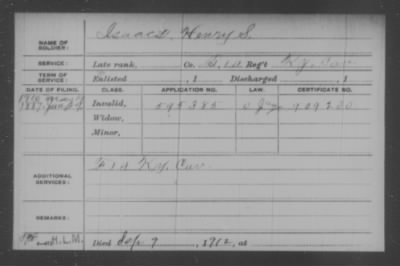 NAME OF SOLDIER: Isaacs, Henry S.
SERVICE: Late rank, Co. G, 1st Reg't Ky. Cav.
TERM OF SERVICE: Enlisted , 1 Discharged , 1
DATE OF FILING. CLASS. APPLICATION NO. LAW. CERTIFICATE NO.
Invalid, 595385 909230
Widow,
Minor,
ADDITIONAL SERVICES: F 1st Ky. Cav
REMARKS:
H.L.M. Died 9, 1912, at